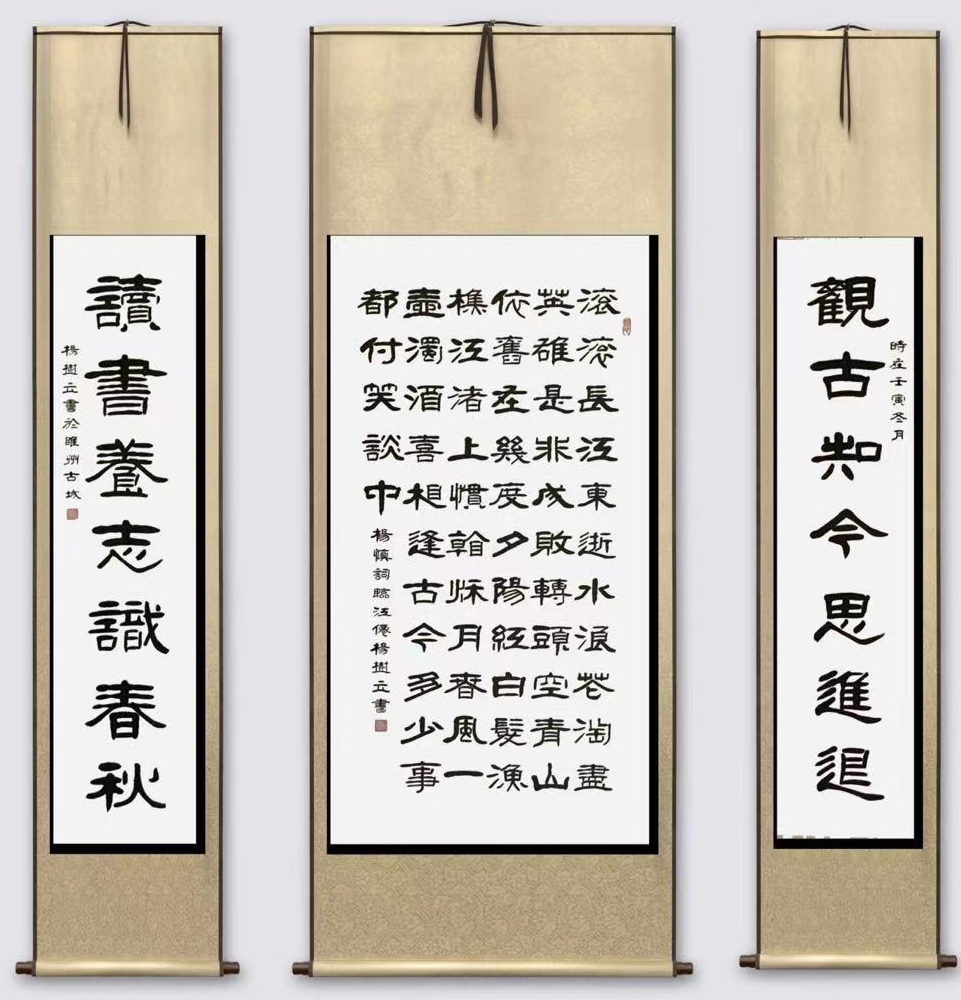 時在壬寅冬月
觀古知今思進退
滚滚長江東逝水浪花淘盡
英雄是非成敗轉頭空青山
依舊在幾度夕陽紅白髮漁
樵江渚上慣看秋月春風一
壺濁酒喜相逢古今多少事
都付笑談中
楊慎詞臨江僊楊樹立書
讀書養志識春秋
楊樹立書於睢州古城